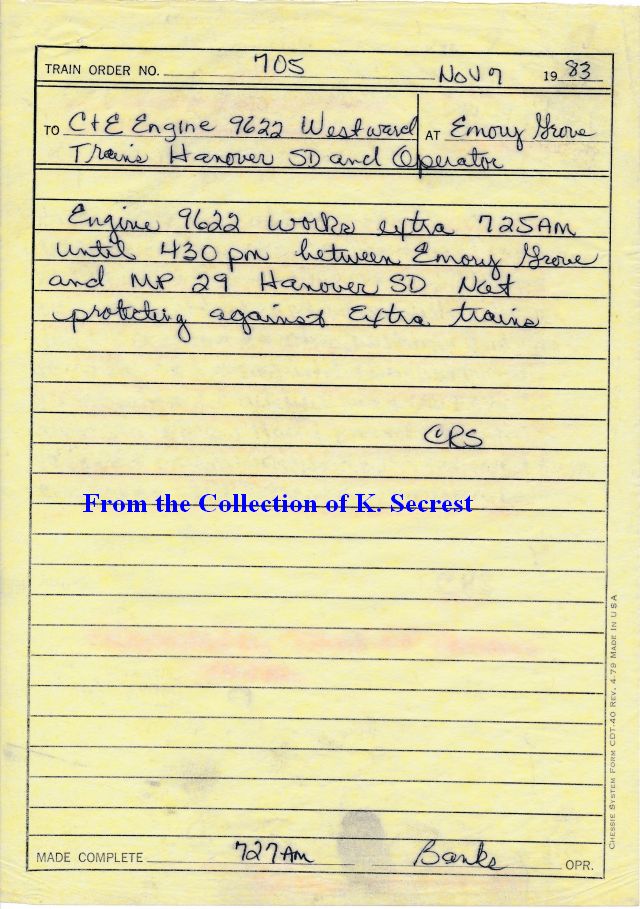 TRAIN ORDER NO. 705 Nov 7 19 83
TO C+E Engine 9622 Westward AT Emory Grove
Trains Hanover SD and Operator
Engine 9622 works extra 725AM
until 430 pm between Emory Grove
and MP 29 Hanover SD Not
protecting against Extra trains
CRS
From the Collection of K. Secrest
MADE COMPLETE 727AM Banks OPR.
CHESSIE SYSTEM FORM CDT-40 REV. 4-79 MADE IN USA